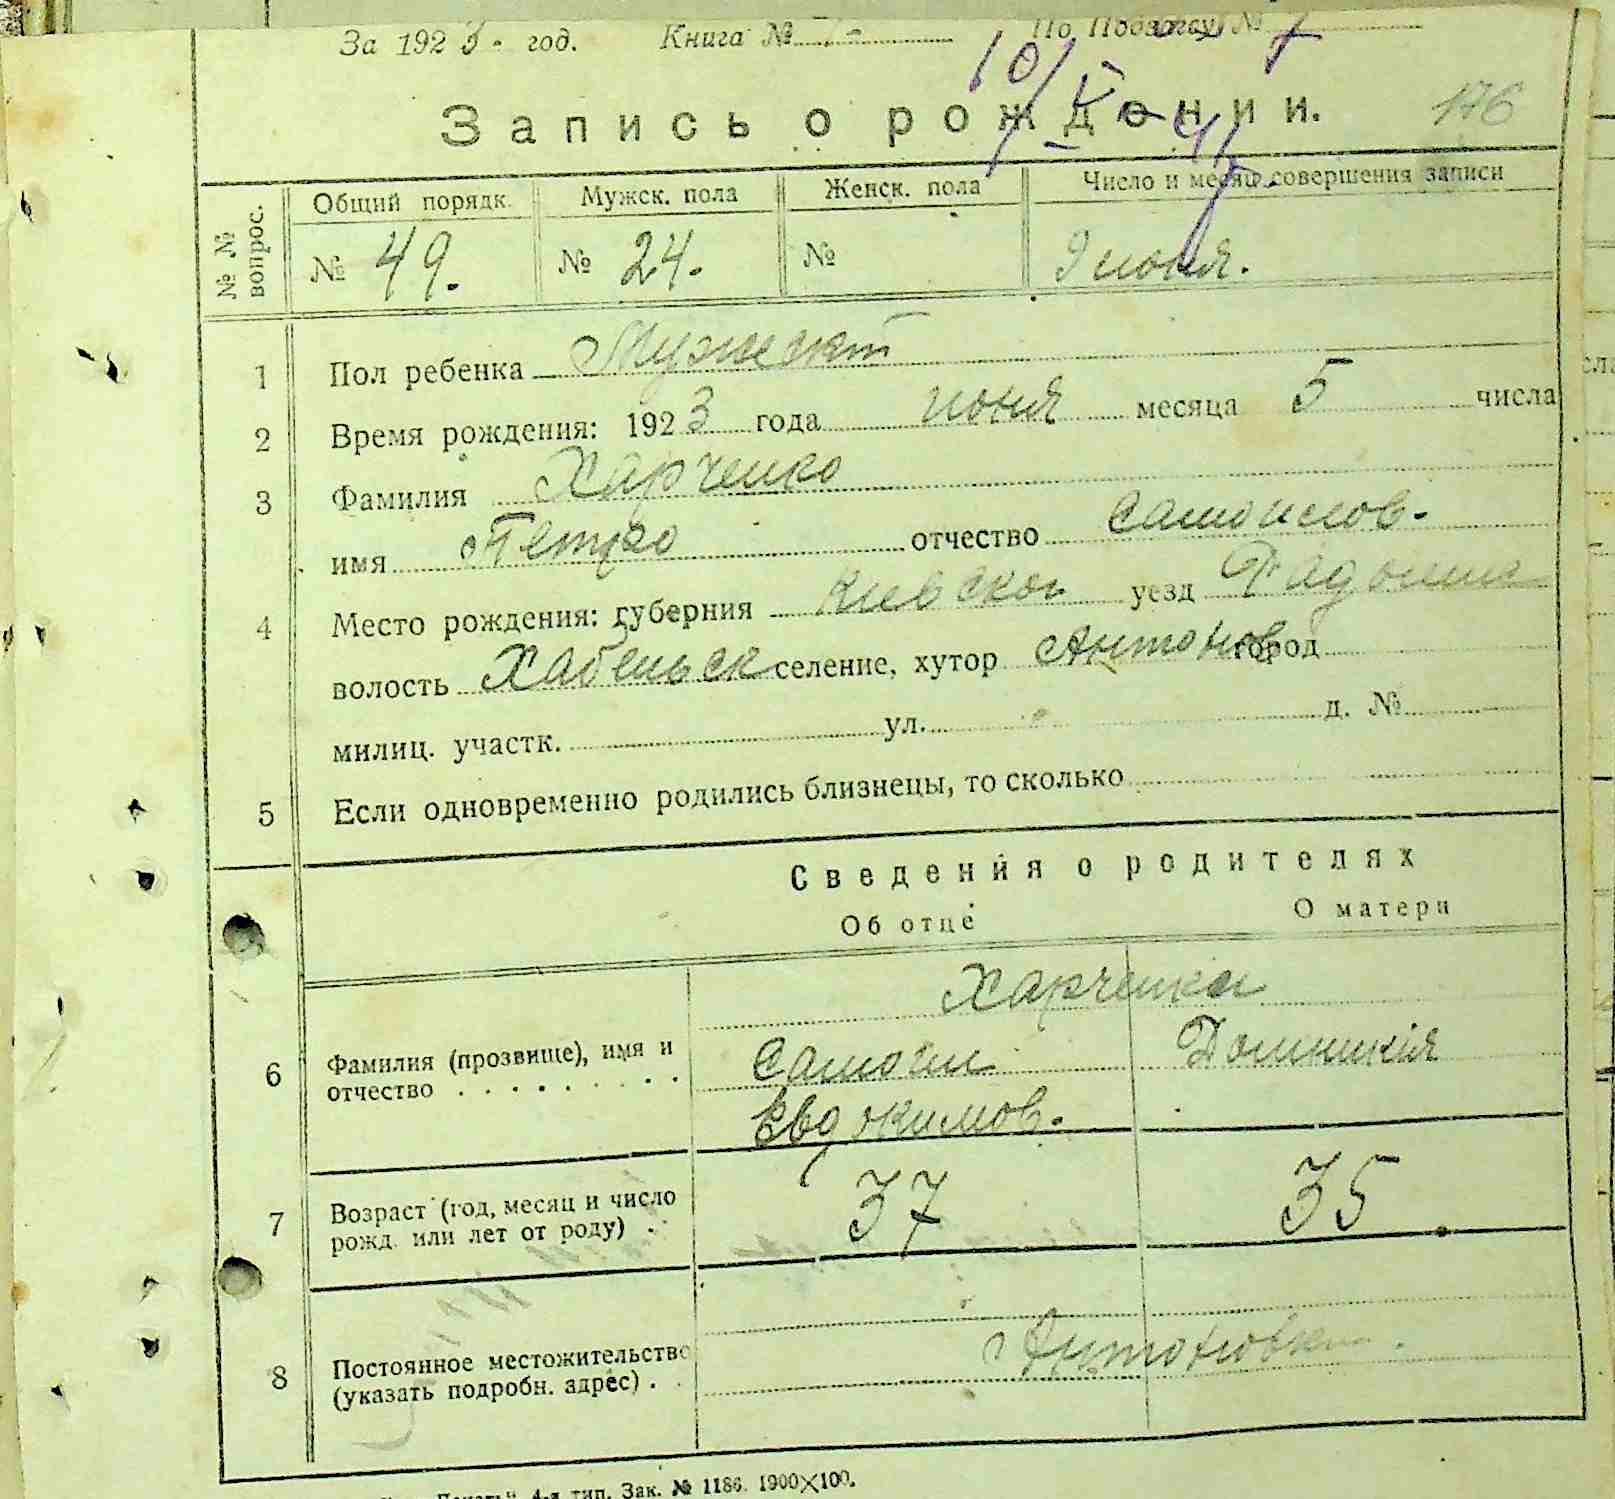 За 1923 - год. Книга № По Подзагсу №
Запись о рождении. 176
№ № вопрос.
Общий порядк. Мужск. пола Женск. пола Число и месяц совершения записи
№ 49. № 24. № 9 июня.
1 Пол ребенка Мужескт
2 Время рождения: 1923 года июня месяца 5 числа
3 Фамилия Харченко
имя Петро отчество Самоилов.
4 Место рождения: губерния Киевской уезд Радомш
волость Хабеньск селение, хутор Антонов город
милиц. участк. ул. д. №
5 Если одновременно родились близнецы, то сколько
Сведения о родителях
Об отце О матери
Харченки
6 Фамилия (прозвище), имя и отчество . . . . . . . . Самоил Домникія
Евдокимов.
7 Возраст (год, месяц и число рожд. или лет от роду) . 37 35
8 Постоянное местожительство (указать подробн. адрес) . Антоновка.
4-я тип. Зак. № 1186. 1900×100.